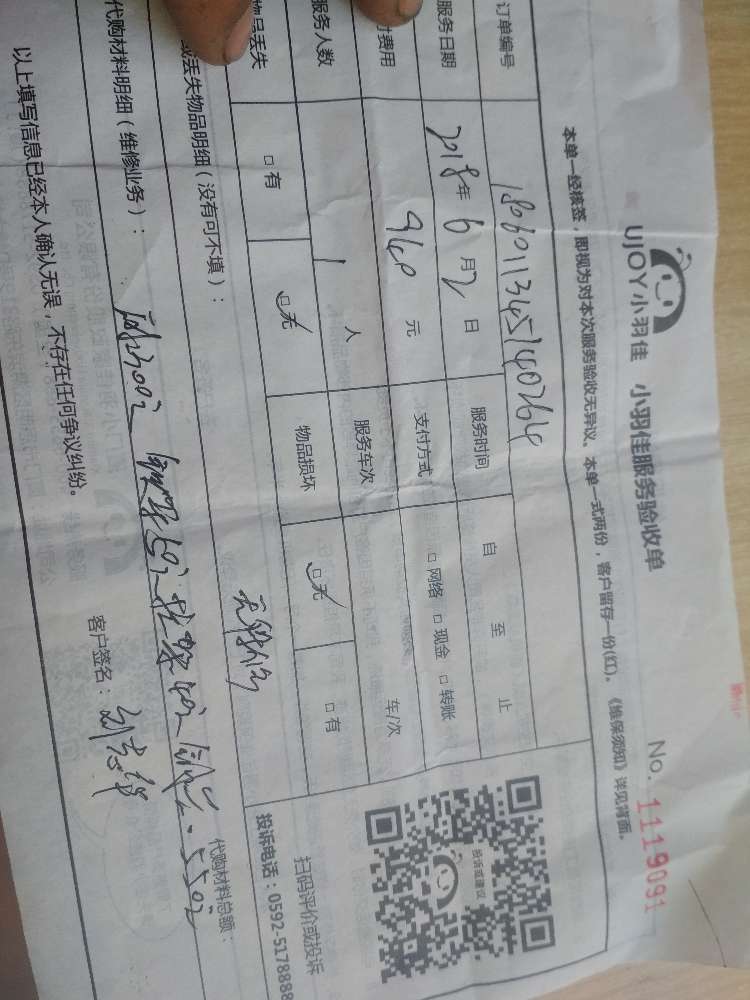 UJOY小羽佳 小羽佳服务验收单
No. 1119091
本单一经核签，即视为对本次服务验收无异议。本单一式两份，客户留存一份(红)。《维保须知》详见背面。
订单编号 180601134514026
服务日期 2018年6月2日 服务时间 自 至 止
付费用 960元 支付方式 □网络 □现金 □转账
服务人数 1人 服务车次 车/次
物品丢失 □有 □无 物品损坏 □无 □有
投诉或建议
扫码评价或投诉
投诉电话：0592-5178888
或丢失物品明细（没有可不填）：
无
代购材料明细（维修业务）：
代购材料总额：
550元
以上填写信息已经本人确认无误，不存在任何争议纠纷。
客户签名：